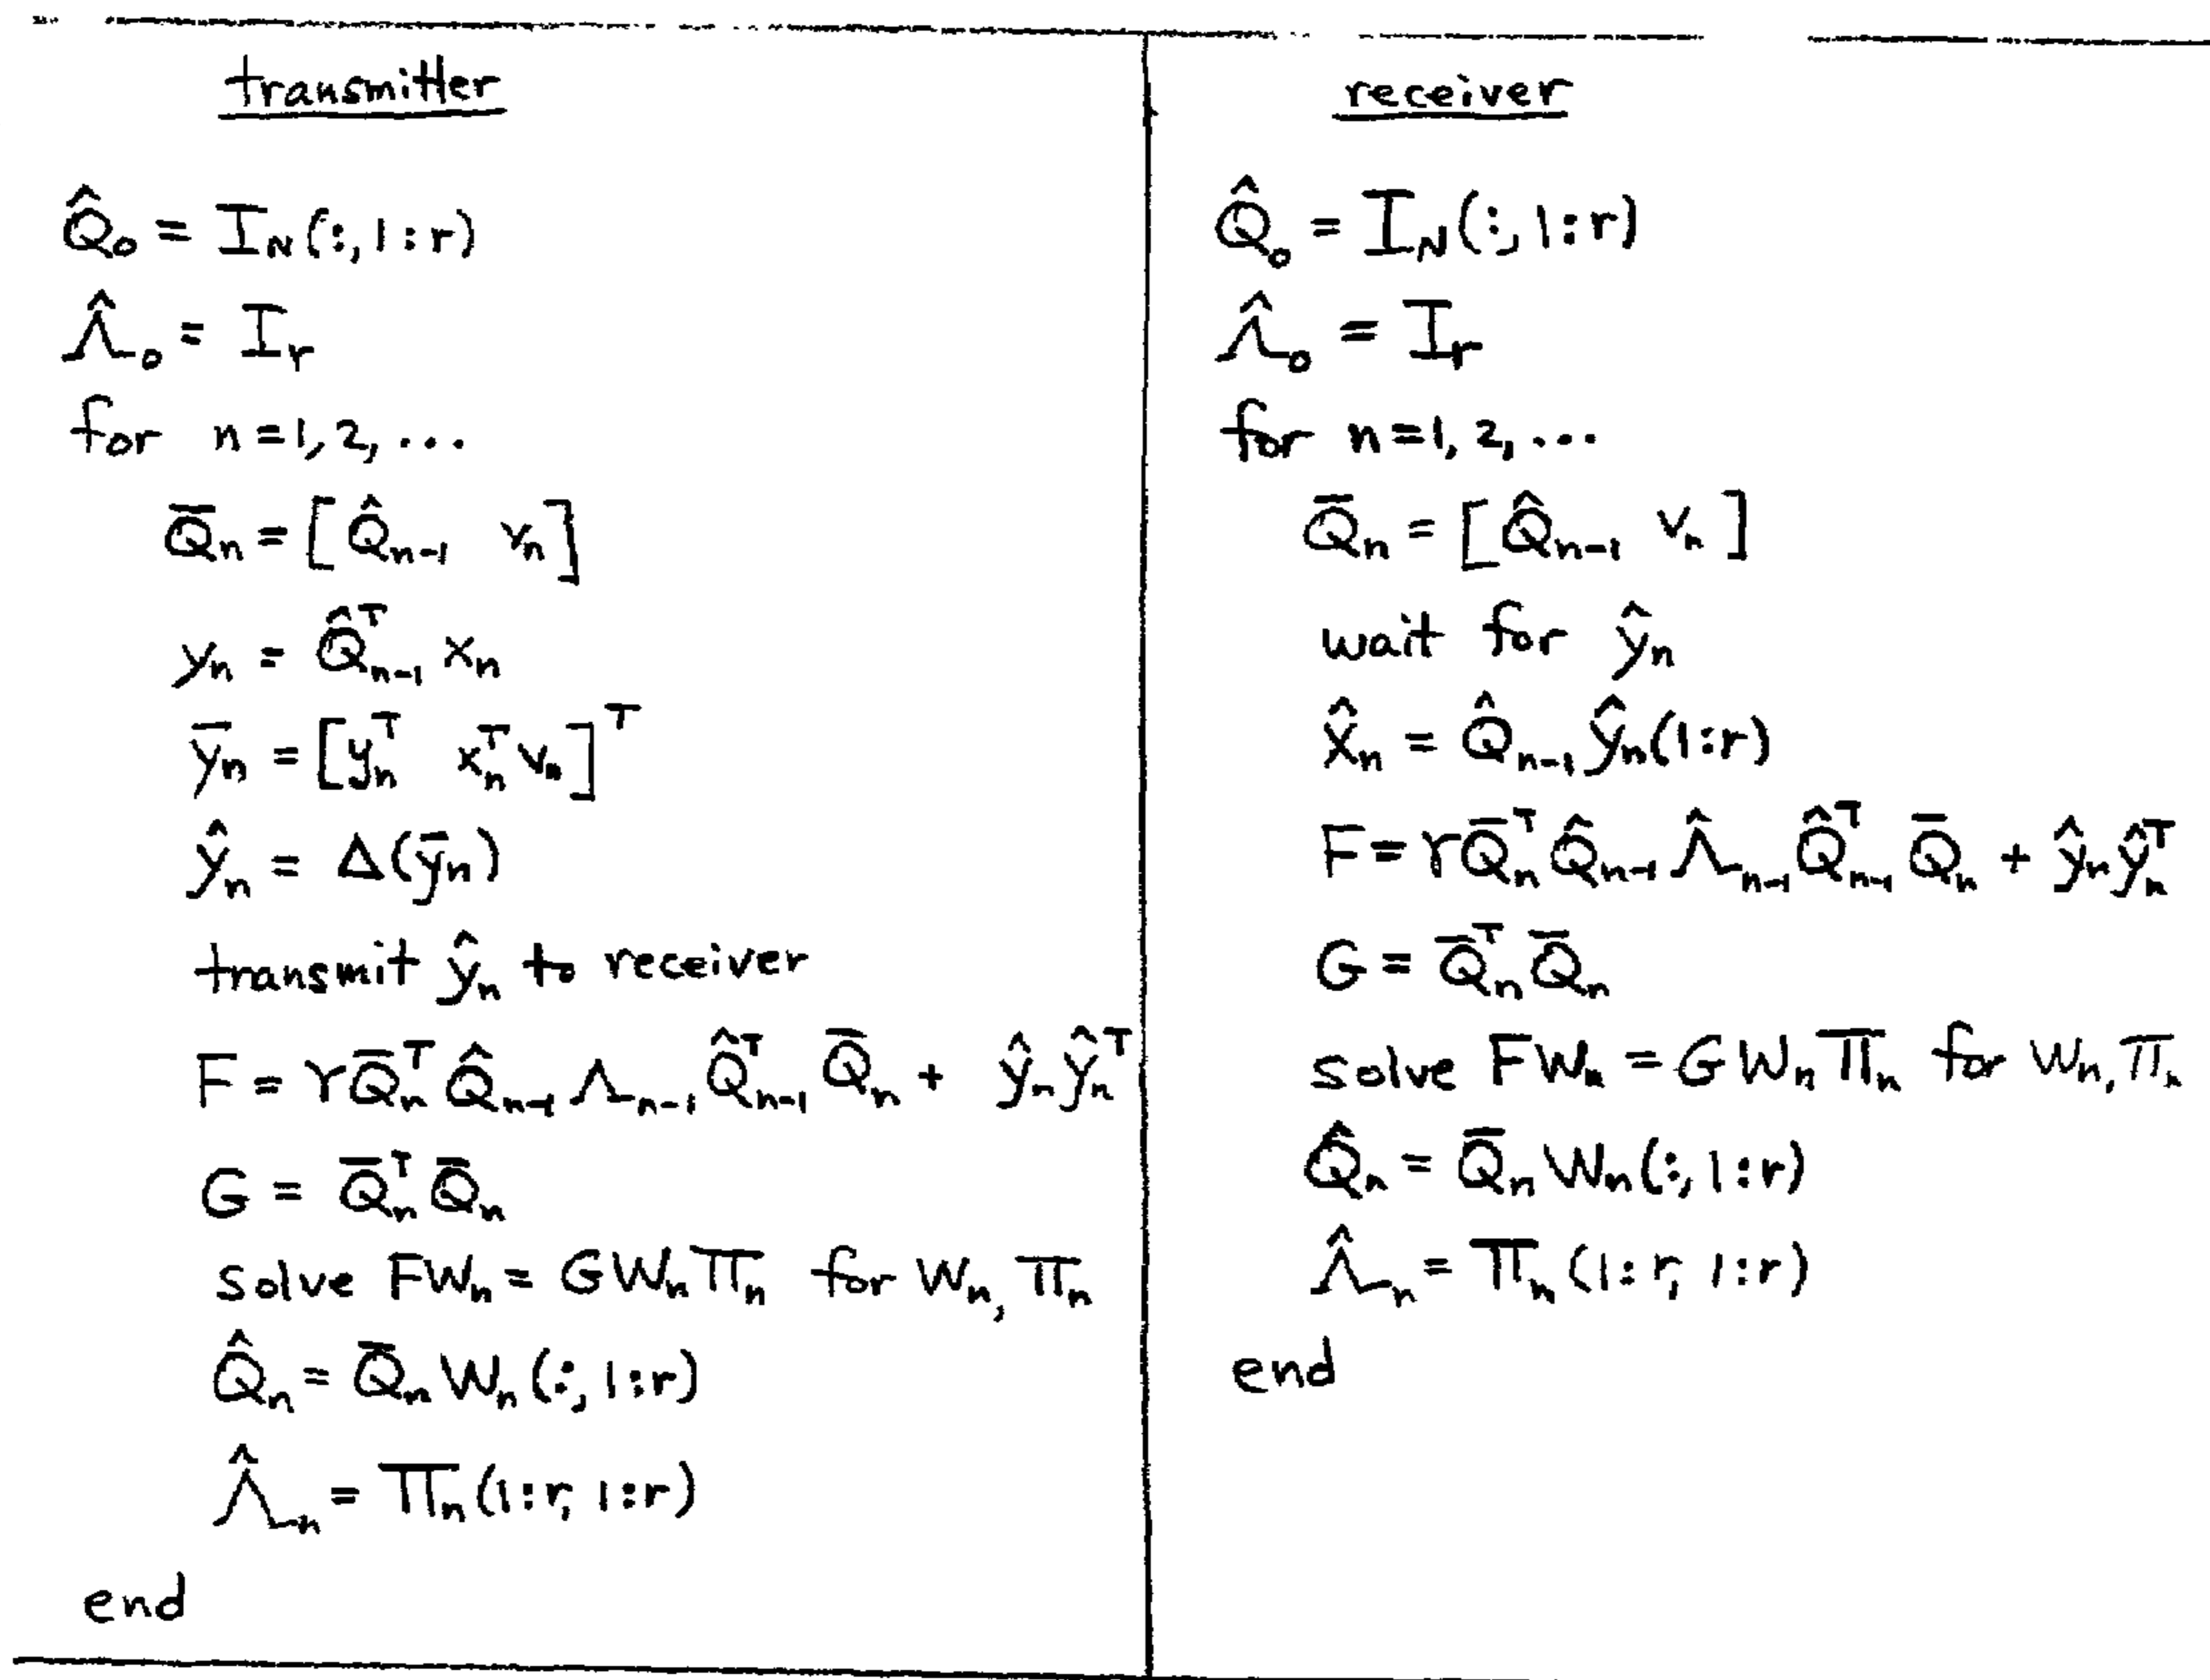 transmitter
Q̂₀ = I_N(:,1:r)
Λ̂₀ = I_r
for n=1,2,...
Q̄ₙ = [Q̂ₙ₋₁ vₙ]
yₙ = Q̂ᵀₙ₋₁ xₙ
ȳₙ = [yₙᵀ xₙᵀvₙ]ᵀ
ŷₙ = Δ(ȳₙ)
transmit ŷₙ to receiver
F = γQ̄ₙᵀ Q̂ₙ₋₁ Λₙ₋₁ Q̂ᵀₙ₋₁ Q̄ₙ + ŷₙŷₙᵀ
G = Q̄ₙᵀ Q̄ₙ
solve FWₙ = GWₙΠₙ for Wₙ, Πₙ
Q̂ₙ = Q̄ₙ Wₙ(:,1:r)
Λ̂ₙ = Πₙ(1:r, 1:r)
end
receiver
Q̂₀ = I_N(:,1:r)
Λ̂₀ = I_r
for n=1,2,...
Q̄ₙ = [Q̂ₙ₋₁ vₙ]
wait for ŷₙ
x̂ₙ = Q̂ₙ₋₁ ŷₙ(1:r)
F = γQ̄ₙᵀ Q̂ₙ₋₁ Λ̂ₙ₋₁ Q̂ᵀₙ₋₁ Q̄ₙ + ŷₙŷₙᵀ
G = Q̄ₙᵀ Q̄ₙ
solve FWₙ = GWₙΠₙ for Wₙ, Πₙ
Q̂ₙ = Q̄ₙ Wₙ(:,1:r)
Λ̂ₙ = Πₙ(1:r, 1:r)
end